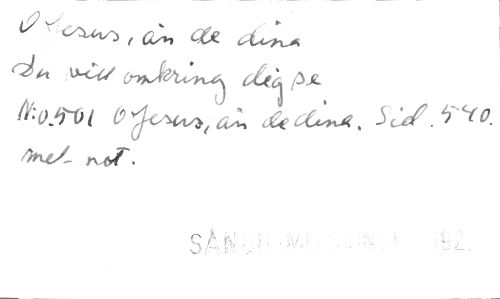 O Jesus, än de dina
Du vill omkring dig se
N:o 501 O Jesus, än de dina. Sid. 540.
mel. not.
192